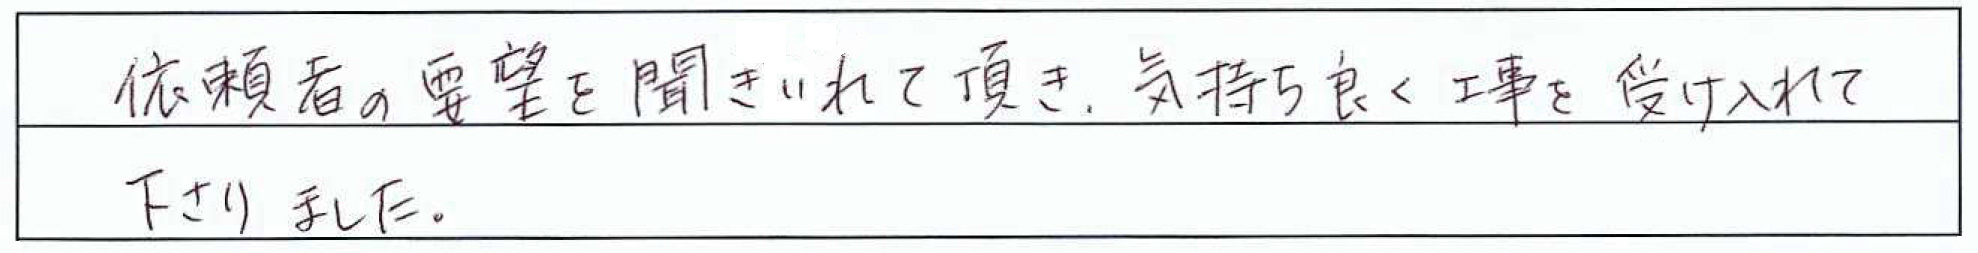 依頼者の要望を聞きいれて頂き、気持ち良く工事を受け入れて
下さりました。